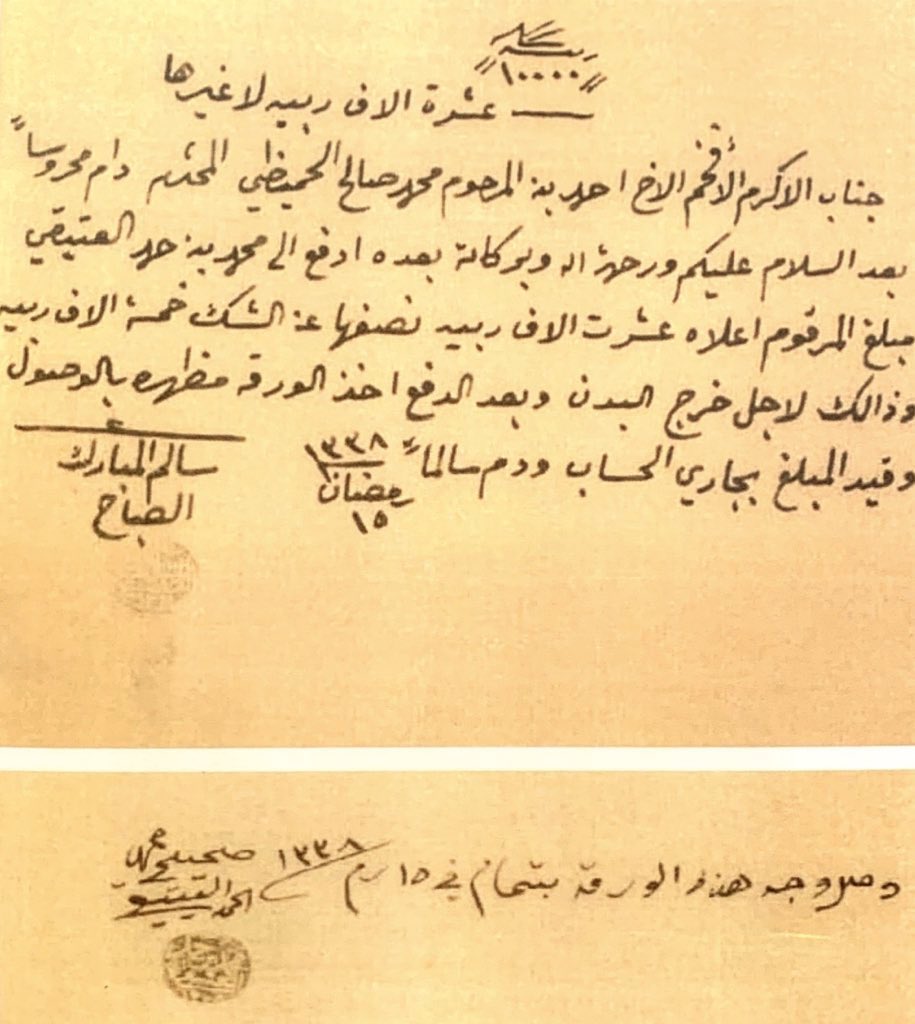 ربيه
"١٠٠٠٠"
عشرة الاف ربيه لا غيرها
جناب الاكرم الأفخم الاخ احمد بن المرحوم محمد صالح الحميظي المحترم دام محروساً
بعد السلام عليكم ورحمة الله وبركاته بعده ادفع الى محمد بن حمد العتيقي
مبلغ المرقوم اعلاه عشرت الاف ربيه نصفها عن الشك خمسة الاف ربيه
وذالك لاجل خرج البدن وبعد الدفع اخذ الورقه مظهره بالوصول
وقيد المبلغ بجاري الحساب ودم سالماً ١٣٣٨
رمضان
١٥
سالم المبارك
الصباح
وصل وجه هذه الورقة بتمام في ١٥ رم ١٣٣٨
صحيح